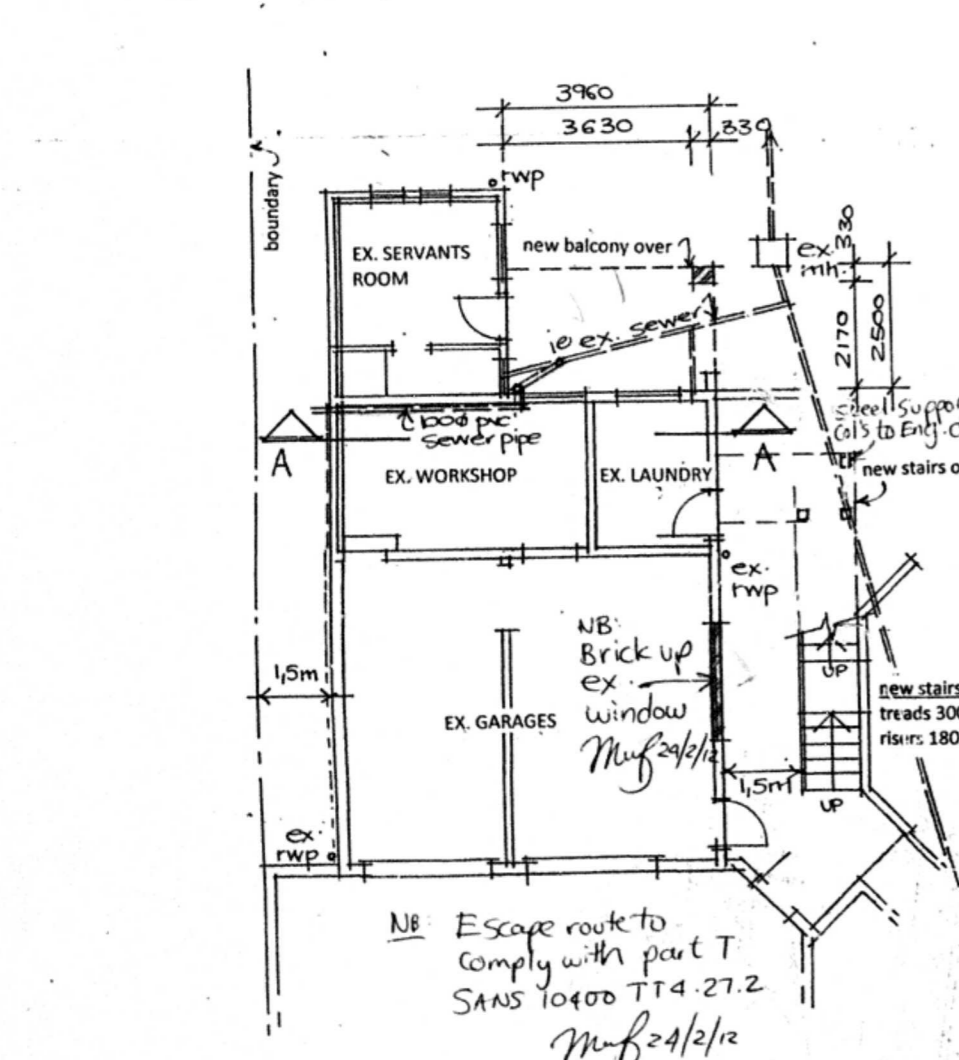 3960
3630
330
rwp
boundary
EX. SERVANTS
ROOM
new balcony over
ex.
mh.
330
2170
2500
ie ex. sewer
100ø pvc
sewer pipe
Steel Suppo
Col's to Eng. C
A
A
new stairs o
EX. WORKSHOP
EX. LAUNDRY
ex.
rwp
NB:
Brick up
ex.
window
24/2/12
1,5m
EX. GARAGES
UP
new stairs
treads 300
risers 180
1,5m
UP
ex.
rwp
NB: Escape route to
comply with part T
SANS 10400 TT4.27.2
24/2/12